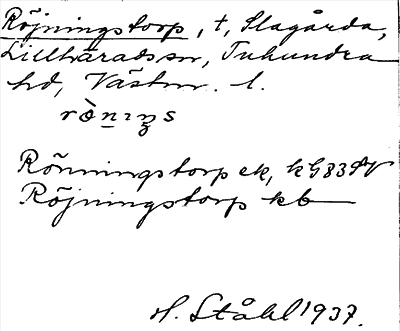 Röjningstorp, t, Slagårda,
Lillhärads sn, Tuhundra
hd, Västm. l.
rò̤nıŋs
Rönningstorp ek, kG83
Röjningstorp kb
H. Ståhl 1937.